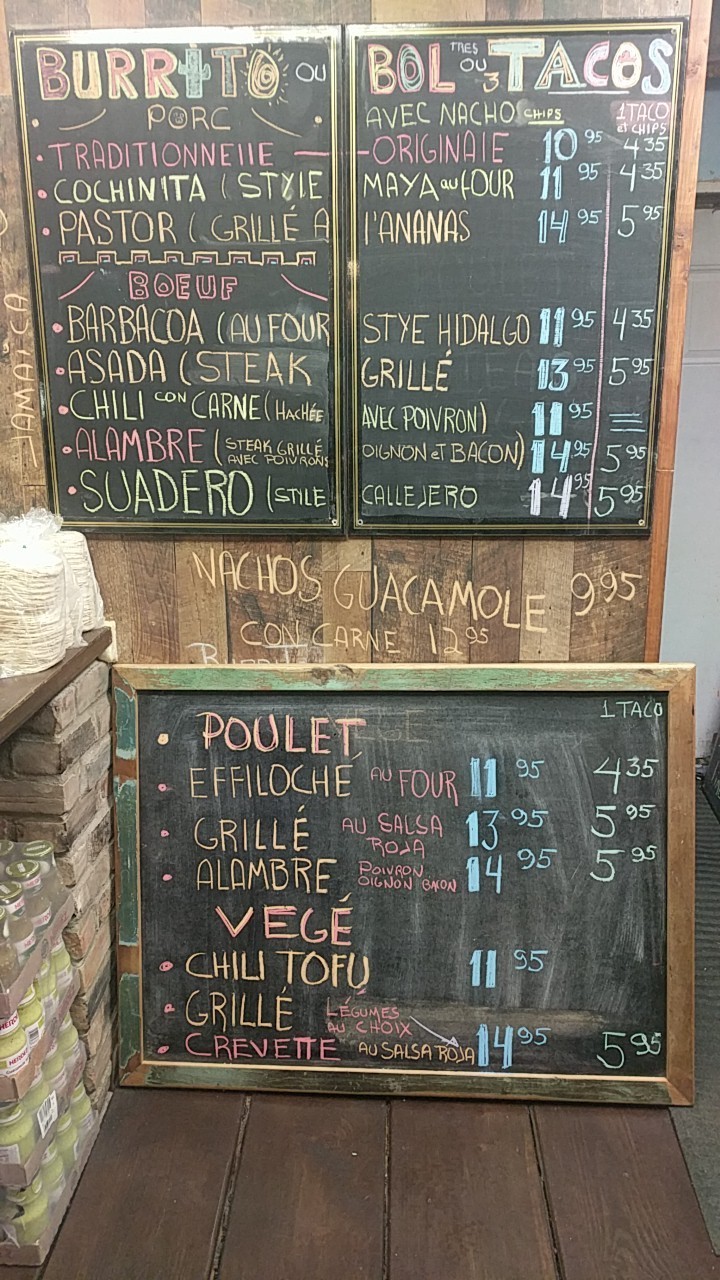 BURRITO OU BOL OU TRES 3 TACOS
PORC AVEC NACHO CHIPS 1 TACO et CHIPS
TRADITIONNELLE - ORIGINALE 10 95 4 35
COCHINITA ( STYLE MAYA au FOUR 11 95 4 35
PASTOR ( GRILLÉ A L'ANANAS 14 95 5 95
BOEUF
BARBACOA ( AU FOUR STYE HIDALGO 11 95 4 35
ASADA ( STEAK GRILLÉ 13 95 5 95
CHILI CON CARNE ( HACHÉE AVEC POIVRON) 11 95
ALAMBRE ( STEAK GRILLÉ AVEC POIVRONS OIGNON et BACON) 14 95 5 95
SUADERO ( STILE CALLEJERO 14 95 5 95
JAMAICA
NACHOS GUACAMOLE 9 95
CON CARNE 12 95
1 TACO
POULET
EFFILOCHÉ AU FOUR 11 95 4 35
GRILLÉ AU SALSA ROJA 13 95 5 95
ALAMBRE POIVRON OIGNON BACON 14 95 5 95
VEGÉ
CHILI TOFU 11 95
GRILLÉ LÉGUMES AU CHOIX
CREVETTE AU SALSA ROJA 14 95 5 95